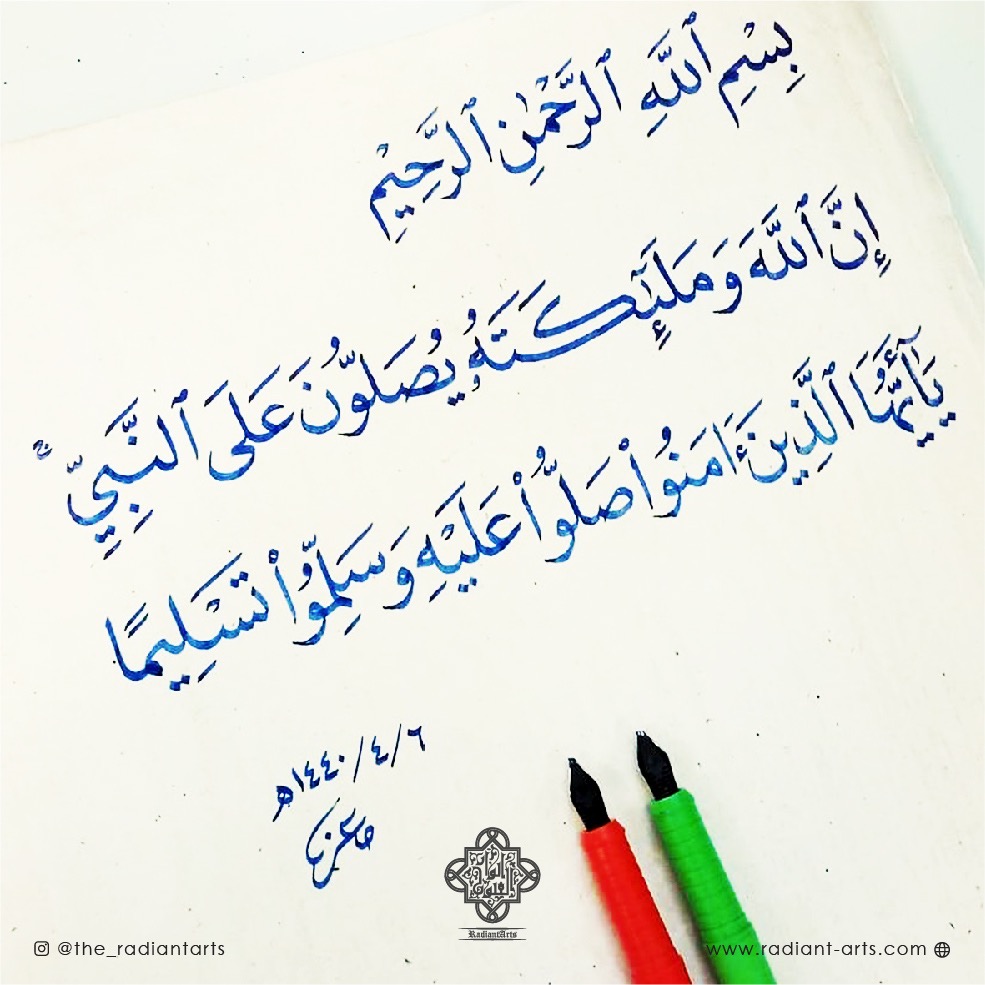 بِسْمِ ٱللَّهِ ٱلرَّحْمَٰنِ ٱلرَّحِيْمِ
إِنَّ ٱللَّهَ وَمَلَٰٓئِكَتَهُۥ يُصَلُّونَ عَلَى ٱلنَّبِيِّ ۚ
يَٰٓأَيُّهَا ٱلَّذِينَ ءَامَنُوا۟ صَلُّوا۟ عَلَيْهِ وَسَلِّمُوا۟ تَسْلِيمًا
٦/٤/١٤٤٠هـ
RadiantArts
@the_radiantarts
www.radiant-arts.com